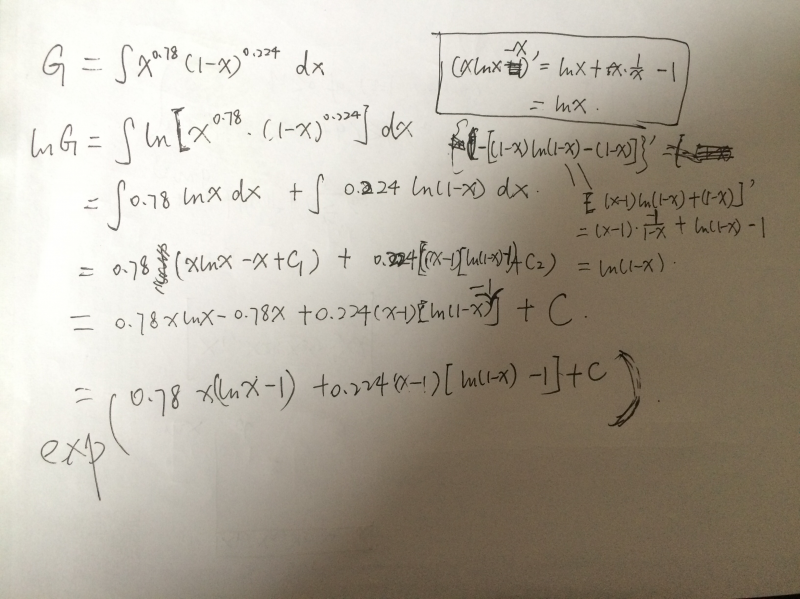 G = ∫ x^0.78 (1-x)^0.224 dx
(x ln x -x)' = ln x + x · 1/x - 1
= ln x .
ln G = ∫ ln [ x^0.78 · (1-x)^0.224 ] dx
{ -[(1-x) ln(1-x) - (1-x)] }' =
= ∫ 0.78 ln x dx + ∫ 0.224 ln(1-x) dx .
[ (x-1) ln(1-x) + (1-x) ]'
= (x-1) · -1/(1-x) + ln(1-x) - 1
= ln(1-x) .
= 0.78 (x ln x - x + C1) + 0.224 [(x-1)[ln(1-x)-1] + C2)
= 0.78 x ln x - 0.78x + 0.224 (x-1) [ ln(1-x) -1 ] + C .
= 0.78 x(ln x - 1) + 0.224 (x-1) [ ln(1-x) - 1 ] + C ) .
exp (